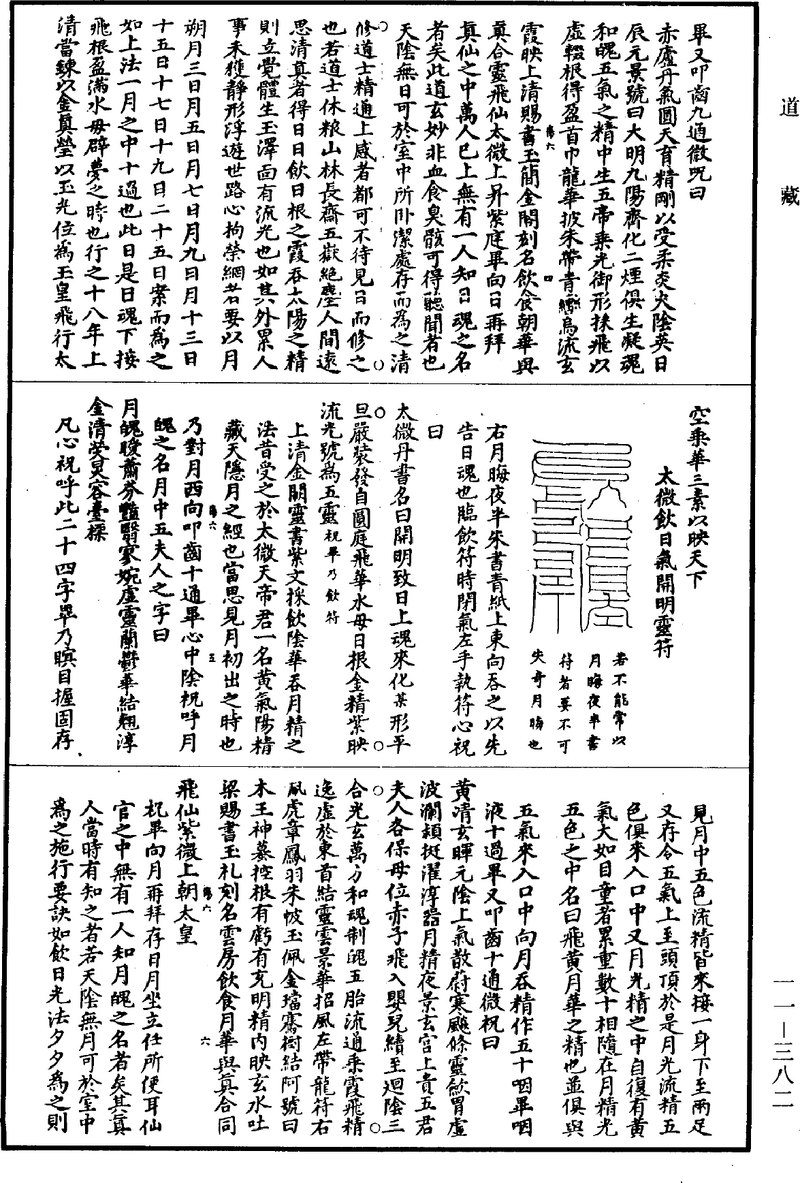 道藏
畢又叩齒九通微咒曰
赤廬丹氣圓天育精剛以受柔炎火陰英日
辰元景號曰大明九陽齊化二煙俱生凝魂
和魄五氣之精中生五帝乘光御形採飛以
虛輟根得盈首巾龍華披朱帶青轡烏流玄
霞映上清賜書玉簡金閣刻名飲食朝華與
真合靈飛仙太微上昇紫庭畢向日再拜
真仙之中萬人已上無有一人知日魂之名
者矣此道玄妙非血食臭骸可得聽聞者也
天陰無日可於室中所卧潔處存而為之清
修道士精通上感者都可不待見日而修之
也若道士休粮山林長齋五嶽絕塵人間遠
思清真者得日日飲日根之霞吞太陽之精
則立覺體生玉澤面有流光也如其外累人
事未獲靜形浮遊世路心拘榮網者要以月
朔月三日月五日月七日月九日月十三日
十五日十七日十九日二十五日案而為之
如上法一月之中十過也此日是日魂下接
飛根盈滿水母辟夢之時也行之十八年上
清當鍊以金真瑩以玉光位為玉皇飛行太
空乘華三素以映天下
太微飲日氣開明靈符
若不能常以
月晦夜半書
符者要不可
失奇月晦也
右月晦夜半朱書青紙上東向吞之以先
告日魂也臨飲符時閉氣左手執符心祝
曰
太微丹書名曰開明致日上魂來化某形平
旦嚴裝發自圓庭飛華水母日根金精紫映
流光號為五靈祝畢乃飲符
上清金闕靈書紫文採飲陰華吞月精之
法昔受之於太微天帝君一名黃氣陽精
藏天隱月之經也當思見月初出之時也
乃對月西向叩齒十通畢心中陰祝呼月
魄之名月中五夫人之字曰
月魄曖蕭芬艷翳寥婉虛靈蘭鬱華結翹淳
金清熒炅容臺標
凡心祝呼此二十四字畢乃瞑目握固存
見月中五色流精皆來接一身下至兩足
又存令五氣上至頭頂於是月光流精五
色俱來入口中又月光精之中自復有黃
氣大如目童者累重數十相隨在月精光
五色之中名曰飛黃月華之精也並俱與
五氣來入口中向月吞精作五十咽畢咽
液十過畢又叩齒十通微祝曰
黃清玄暉元陰上氣散蔚寒飈條靈斂胃虛
波瀾穎挺濯淳器月精夜景玄宮上貴五君
夫人各保母位赤子飛入嬰兒續至迴陰三
合光玄萬方和魂制魄五胎流通乘霞飛精
逸虛於東首結靈雲景華招風左帶龍符右
佩虎章鳳羽朱帔玉佩金璫騫樹結阿號曰
木王神蟇控根有虧有充明精內映玄水吐
梁賜書玉札刻名雲房飲食月華與真合同
飛仙紫微上朝太皇
祝畢向月再拜存日月坐立任所便耳仙
官之中無有一人知月魄之名者矣其真
人當時有知之者若天陰無月可於室中
為之施行要訣如飲日光法夕夕為之則
一一—三八二